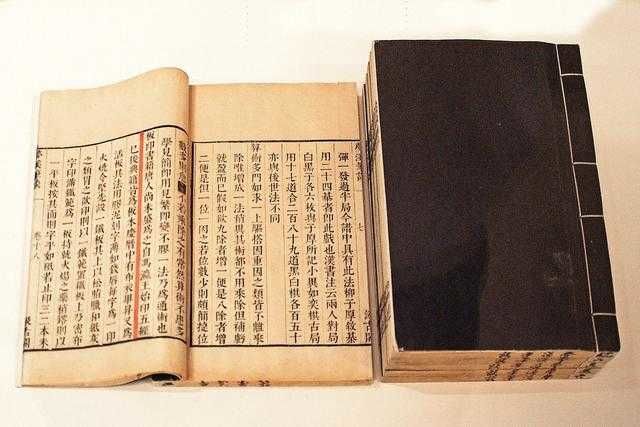 七
彈一發過半局今譜中具有此法柳子厚敘棊
用二十四棊者卽此戲也漢書注云兩人對局
白黑子各六枚與子厚所記小異如奕棋古局
用十七道合二百八十九道黑白棋各百五十
亦與後世法不同
算術多門如求一上驅搭因重因之類皆不離乘
除唯增成一法稍異其術都不用乘除但補虧
就盈而已假如欲九除者增一便是八除者增
二便是但一位一因之若位數少則頗簡捷位
數多則愈繁不若乘除之有常然算術不患多
學見簡卽用見繁卽變不膠一法乃爲通術也
板印書籍唐人尚未盛爲之自馮瀛王始印五經
已後典籍皆爲板本慶曆中有布衣畢昇又爲
活板其法用膠泥刻字薄如錢脣每字爲一印
火燒令堅先設一鐵板其上以松脂臘和紙灰
之類冒之欲印則以一鐵範置鐵板上乃密布
字印滿鐵範爲一板持就火煬之藥稍鎔則以
一平板按其面則字平如砥若止印三二本未
卷十八